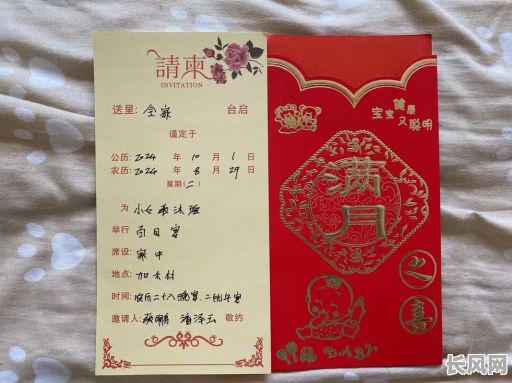 請柬
INVITATION
送呈: 全家 台启
谨定于
公历: 2024 年 10 月 1 日
农历: 2024 年 8 月 29 日
星期(二)
为 小女
举行 百日宴
席设: 家中
地点: 加禾村
时间: 农历二十八晚宴、二十九午宴
邀请人: 敬约
宝宝健康
又聪明
满月
之喜
BABY
长风网
cfw